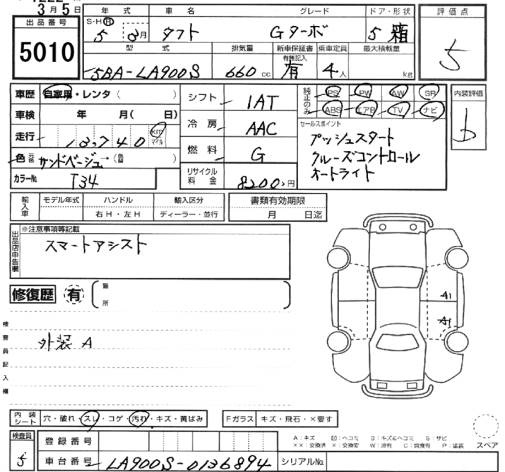 3月5日
出品番号
5010
年式 車名 グレード ドア・形状
S・H・R 5年3月 タフト Gターボ 5 箱
型式 排気量 新車保証書 有無記入 乗車定員 最大積載量
5BA-LA900S 660 cc 有 4人 kg
評価点
5
車歴 自家用・レンタ( )
車検 年 月( 日)
走行 13,740 km マイル
色 サンドベージュ
カラーNo. T34
シフト 1AT
冷房 AAC
燃料 G
リサイクル料金 8200円
純正のみ PS PW AW SR
ABS エアB TV ナビ
セールスポイント
プッシュスタート
クルーズコントロール
オートライト
内装評価
b
輸入車 モデル年式 ハンドル 右H・左H 輸入区分 ディーラー・並行
書類有効期限
月 日迄
出品店申告欄
※注意事項等記載
スマートアシスト
修復歴 有 箇所
検査員記入欄
外装 A
A1
A1
内装シート 穴・破れ・スレ・コゲ・汚れ・キズ・黄ばみ
Fガラス キズ・飛石・×要す
検査員
5
登録番号
車台番号 LA900S-0136894
シリアルNo.
スペア